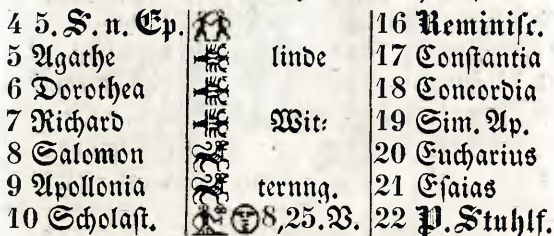 4 5. S. n. Ep. 16 Reminisc.
5 Agathe linde 17 Constantia
6 Dorothea 18 Concordia
7 Richard Wit⸗ 19 Sim. Ap.
8 Salomon 20 Eucharius
9 Apollonia ternng. 21 Esaias
10 Scholast. 8,25.V. 22 P. Stuhlf.